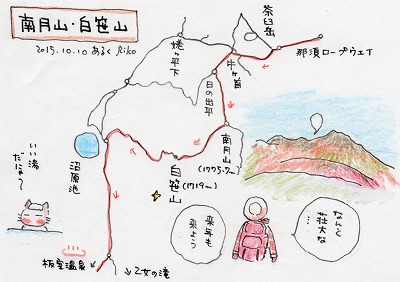 南月山・白笹山
2015.10.10 あるく Riko
茶臼岳
姥ヶ平下
牛ヶ首
那須ロープウェイ
日の出平
南月山
(1775.7m)
白笹山
(1719m)
沼原池
いい湯
だにゃ〜
板室温泉
乙女の滝
なんと
荘大な
…
来年も
来よう